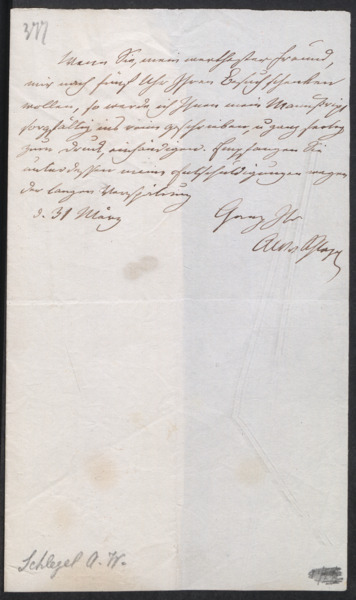 377
Wenn Sie, mein werthester Freund,
mir nach fünf Uhr Ihren Besuch schenken
wollen, so werde ich Ihnen mein Manuscript
sorgfältig ins reine geschrieben, u ganz fertig
zum Druck, einhändigen. Empfangen Sie
unterdessen meine Entschuldigungen wegen
der langen Verzögerung
d. 31 März
Ganz Ihr
AWvSchlegel
Schlegel A. W.